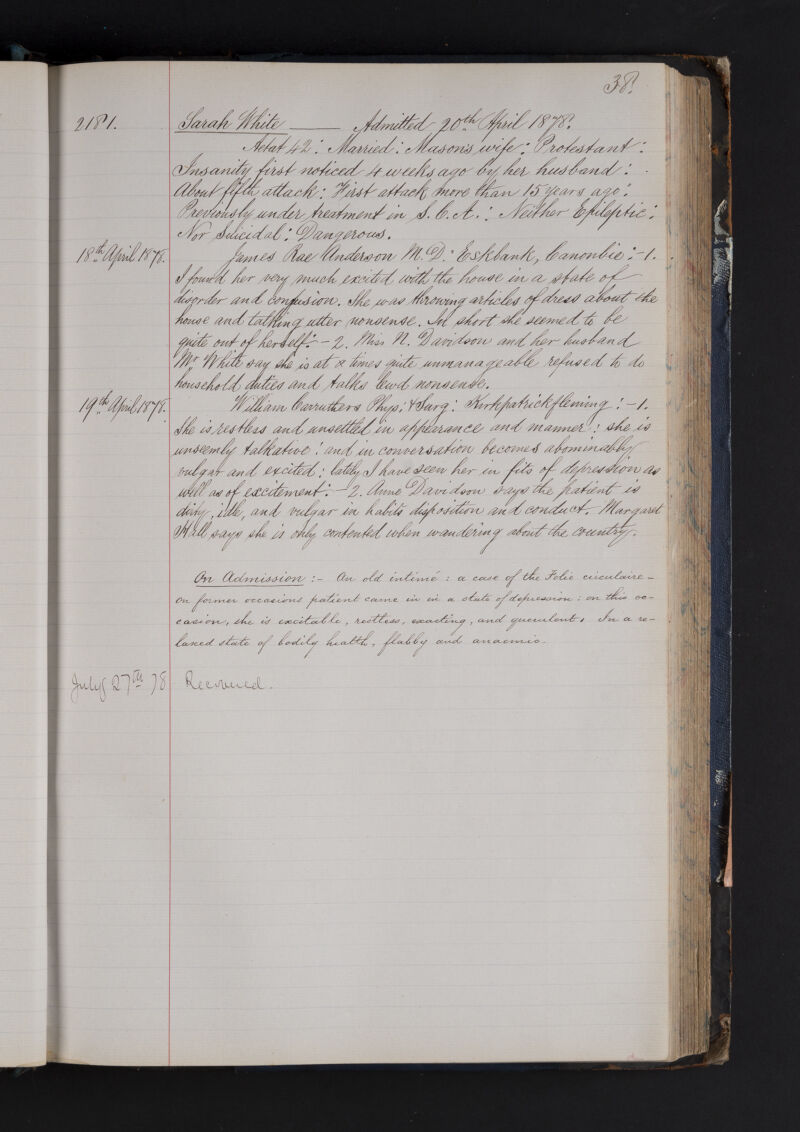 38.
2181. Sarah White — Admitted 20th April 1878.
Aetat 42: Married: Mason's wife: Protestant:
Insanity first noticed 4 weeks ago by her husband:
About fifth attack: First attack more than 15 years ago:
Previously under treatment in S. C. A.: Neither Epileptic:
Nor Suicidal: Dangerous.
18th April 1878. James Rae Anderson M.D: Eskbank, Canonbie:- 1.
I found her very much excited with the house in a state of
disorder and confusion. She was throwing articles of dress about the
house and talking utter nonsense. In short she seemed to be
quite out of herself:- 2. Miss N. Davidson and her husband
Mr White say she is at times quite unmanageable refused to do
household duties and talks lewd nonsense.
19th April 1878. William Carruthers Phys: & Surg: Kirkpatrickfleming:- 1.
She is restless and unsettled in appearance and manner: she is
unseemly talkative: and in conversation becomes abominably
vulgar and excited: lately I have seen her in fits of depression as
well as of excitement:- 2. Anne Davidson says the patient is
dirty, idle, and vulgar in habits disposition and conduct. Margaret
Hill says she is only contented when wandering about the country.
On Admission:- An old intimé: a case of the Folie circulaire-
on former occasions patient came in in a state of depression: on this oc-
casion, she is excitable, restless, exacting, and querulent. In a re-
laxed state of bodily health, flabby and anaemic.
July 27th 78 Recovered.